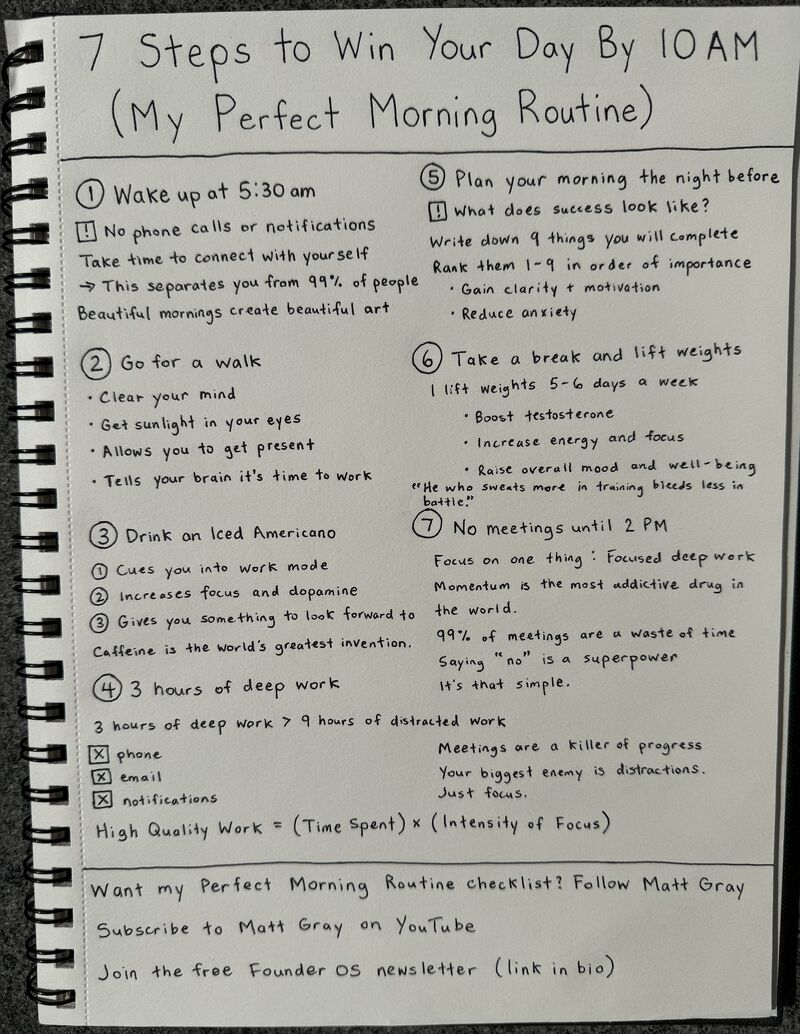 7 Steps to Win Your Day By 10 AM
(My Perfect Morning Routine)
① Wake up at 5:30 am
! No phone calls or notifications
Take time to connect with yourself
→ This separates you from 99% of people
Beautiful mornings create beautiful art
② Go for a walk
• Clear your mind
• Get sunlight in your eyes
• Allows you to get present
• Tells your brain it's time to work
③ Drink an Iced Americano
① Cues you into work mode
② Increases focus and dopamine
③ Gives you something to look forward to
Caffeine is the world's greatest invention.
④ 3 hours of deep work
3 hours of deep work > 9 hours of distracted work
☒ phone
☒ email
☒ notifications
High Quality Work = (Time Spent) × (Intensity of Focus)
⑤ Plan your morning the night before
! What does success look like?
Write down 9 things you will complete
Rank them 1-9 in order of importance
• Gain clarity + motivation
• Reduce anxiety
⑥ Take a break and lift weights
I lift weights 5-6 days a week
• Boost testosterone
• Increase energy and focus
• Raise overall mood and well-being
"He who sweats more in training bleeds less in
battle."
⑦ No meetings until 2 PM
Focus on one thing: Focused deep work
Momentum is the most addictive drug in
the world.
99% of meetings are a waste of time
Saying "no" is a superpower
It's that simple.
Meetings are a killer of progress
Your biggest enemy is distractions.
Just focus.
Want my Perfect Morning Routine checklist? Follow Matt Gray
Subscribe to Matt Gray on YouTube
Join the free Founder OS newsletter (link in bio)